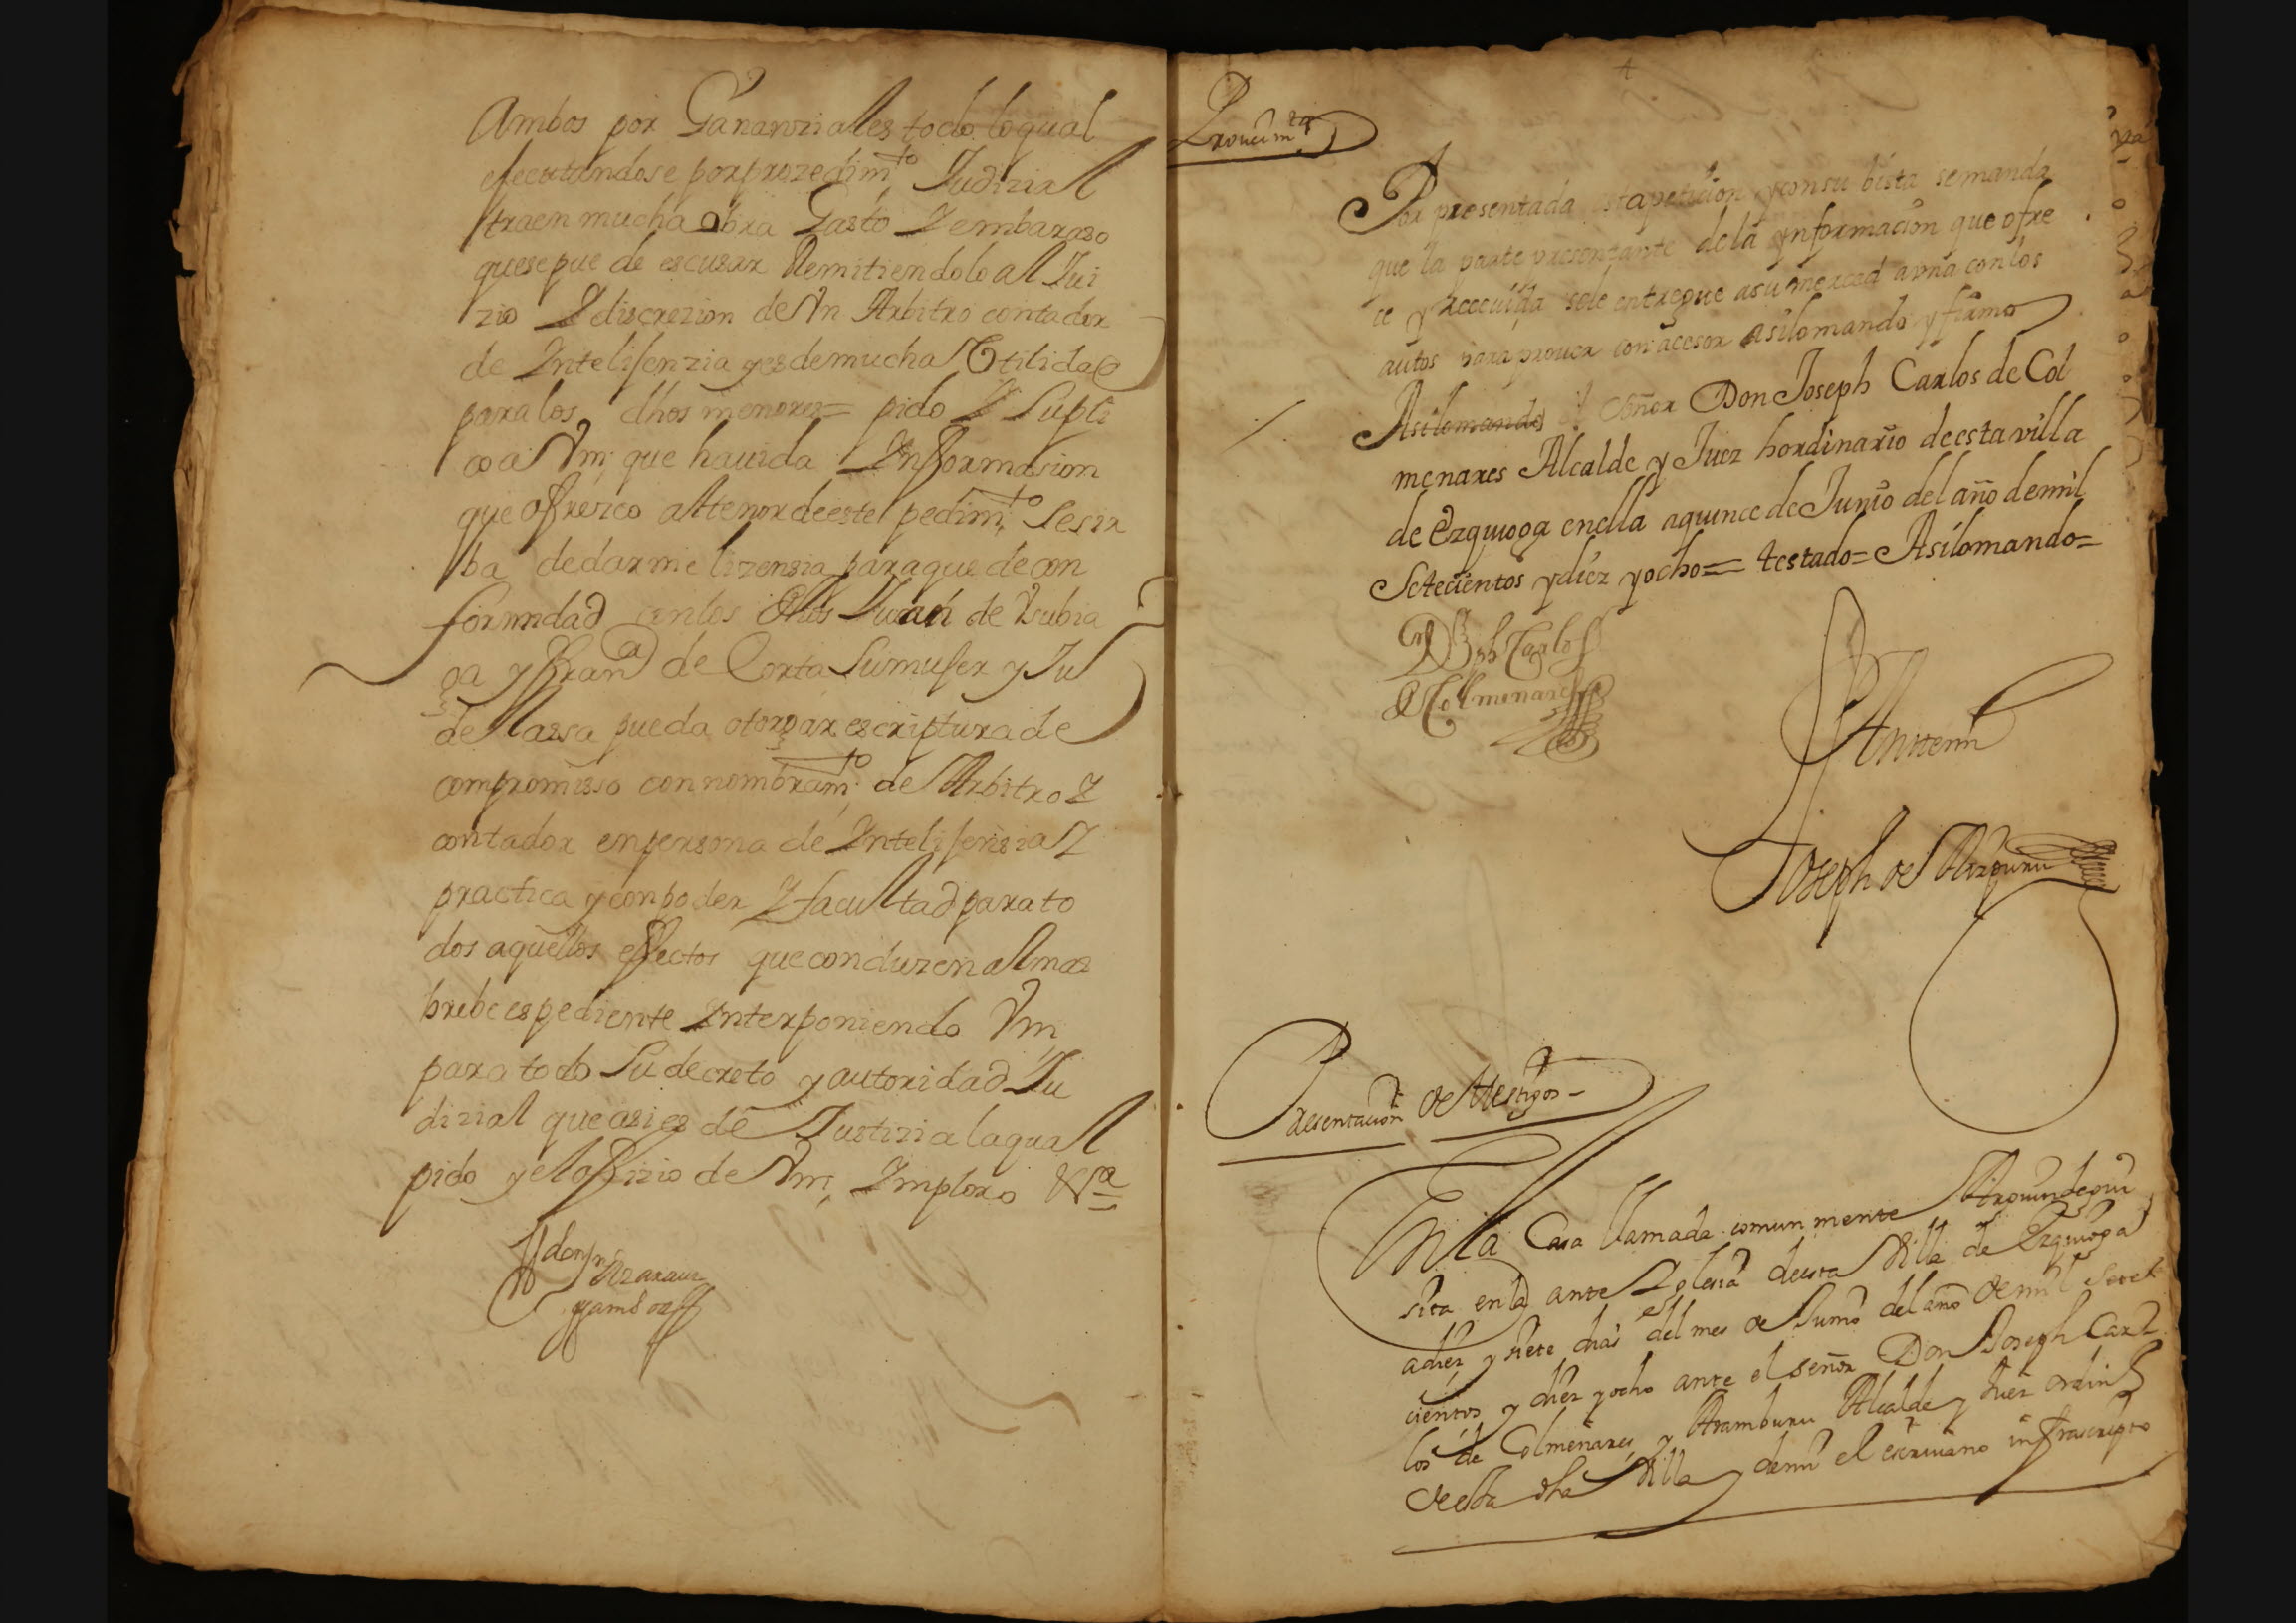 Ambos por Gananziales todo loqual
efectuandose porprozedimto Judizial
traen mucha obra Gasto Y embarazo
quesepue de escusar Remitiendolo al Jui
zio Y discrezion de Vn Arbitro contador
de Intelisenzia yesdemucha Vtilidad
paralos dhos menores= pido Y Supli
co a Vm, que hauida Informasion
que ofrezco altenordeestel pedimto Sesir
ba dedarme lizenzia paraque decon
formidad conlos dhos Juan de Vsubia
ga y Franca de Corta Sumuser y Ju
de Massa pueda otorgar escripturade
compromisso connombramto de Arbitro Y
contador enpersona de Intelisensia Y
practica yconpoder Y facultad parato
dos aquellos effectos queconduzen almas
brebe espediente Interponiendo Vm
para todo Su decreto y autoridad Ju
dizial queasies de Justizia laqual
pido yeloffizio de Vm, Imploro &a
Proueimto
Por presentada estapeticion yconsu bista semanda
que la parte presentante dela ynformacion que ofre
ce y Receuida sele entregue asu merced avna conlos
autos para prouer con acesor asilomando y firmo
Asilomando el Señor Don Joseph Carlos de Col
menares Alcalde y Juez hordinario deesta villa
de Ezquioga enella aquince de Junio del año demil
Setecientos ydiez yocho= testado= Asilomando=
Dn Jph Carlos
de Colmenares
Antemi
Joseph de Aizpuru
Presentacion de testigos-
En la Casa llamada comunmente Arguindegui
sita enla ante Iglesia deesta Villa de Ezquioga
adiez y siete dias del mes de Junio del año de mil setec
cientos y diez yocho ante el señor Don Joseph Car
los de Colmenares y Aramburu Alcalde y Juez ordino
de esta dha Villa y demi el escriuano infrascripto